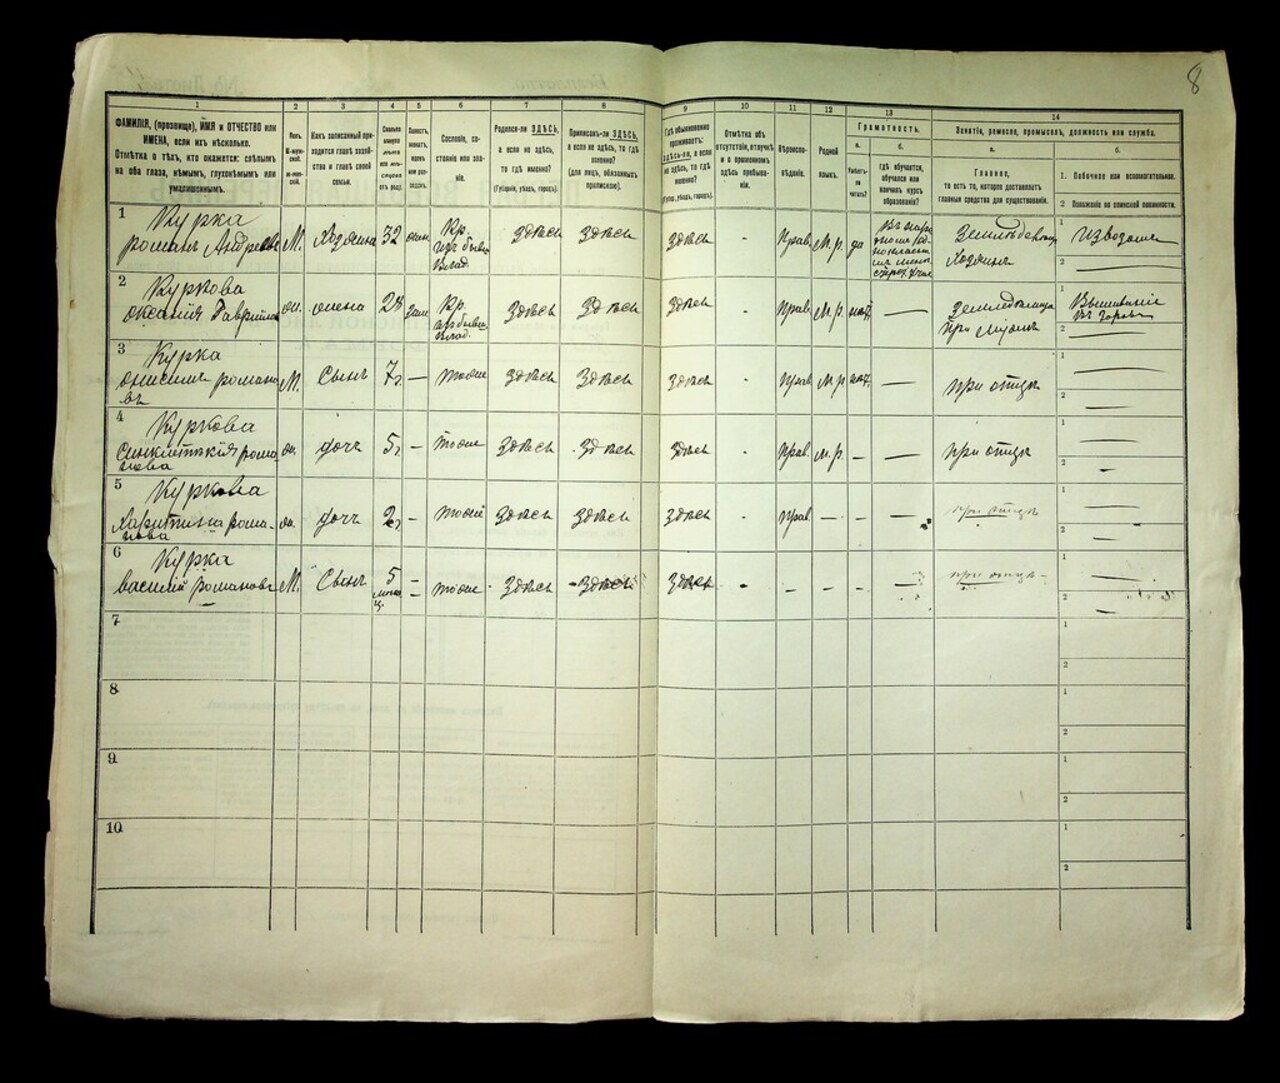 8
1
2
3
4
5
6
7
8
9
10
11
12
13
14
ФАМИЛІЯ, (прозвище), ИМЯ и ОТЧЕСТВО или
ИМЕНА, если ихъ нѣсколько.
Отмѣтка о тѣхъ, кто окажется: слѣпымъ
на оба глаза, нѣмымъ, глухонѣмымъ или
умалишоннымъ.
Полъ.
М-муж-
ской.
Ж-жен-
скій.
Какъ записанный при-
ходится главѣ хозяй-
ства и главѣ своей
семьи.
Сколько
минуло
лѣтъ
отъ роду.
Холостъ,
женатъ,
вдовъ
или раз-
веденъ.
Сословіе, со-
стояніе или зва-
ніе.
Родился-ли ЗДѢСЬ,
а если не здѣсь,
то гдѣ именно?
(Губернія, уѣздъ, городъ).
Приписанъ-ли ЗДѢСЬ,
а если не здѣсь, то гдѣ
именно?
(для лицъ, обязанныхъ
припискою).
Гдѣ обыкновенно
проживаетъ:
здѣсь-ли, а если
не здѣсь, то гдѣ
именно?
(Губер., уѣздъ, городъ).
Отмѣтка объ
отсутствіи, отлучкѣ
и о временномъ
здѣсь пребыва-
ніи.
Вѣроиспо-
вѣданіе.
Родной
языкъ.
Грамотность.
а.
Умѣетъ-
ли
читать?
б.
гдѣ обучается,
обучался или
кончилъ курсъ
образованія?
Занятіе, ремесло, промыселъ, должность или служба.
а.
Главное,
то есть то, которое доставляетъ
главныя средства для существованія.
б.
1. Побочное или вспомогательное.
2 Положеніе по воинской повинности.
1 Курка
романъ Андреевъ М. Хозяинъ 32 женат Кр. изъ бывш. Влад. Здѣсь Здѣсь Здѣсь - Прав. М.р. да Землѣделецъ Хозяинъ 1 извозомъ
2 —
2 Куркова
оксанія Гаврилова жена 28 зам. Кр. изъ бывш. Влад. Здѣсь Здѣсь Здѣсь - Прав. М.р. нѣт — при мужѣ 1 Вышиваніе
2 —
3 Курка
онисимъ романо
въ М. Сынъ 7 г. — тоже Здѣсь Здѣсь Здѣсь - Прав. М.р. нѣт. — при отцѣ 1 —
2 —
4 Куркова
Синклитикія рома
нова дочь 5 г. — тоже Здѣсь Здѣсь Здѣсь - Прав. М.р. — — при отцѣ 1 —
2 —
5 Куркова
Харитина рома-
нова дочь 2 г. — тоже Здѣсь Здѣсь Здѣсь - Прав. — — — при отцѣ 1 —
2 —
6 Курка
василій романовъ М. Сынъ 5 — тоже Здѣсь Здѣсь Здѣсь - — — — — при отцѣ 1 —
2 —
7
1
2
8
1
2
9
1
2
10
1
2